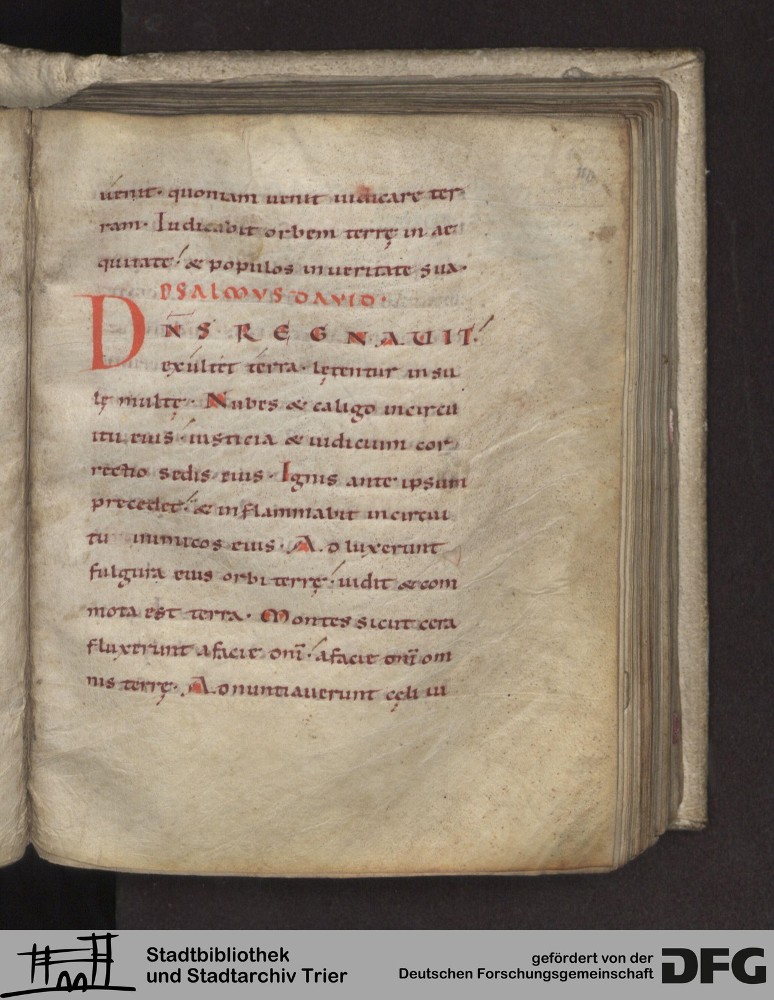 uenit· quoniam uenit iudicare ter
ram· Iudicabit orbem terrę in ae
quitate·́ & populos in ueritate sua·
PSALMVS DAVID·
DN̅S REGNAUIT·́
exultet terra· lętentur insu
lę multę· Nubes & caligo incircu
itu eius· iusticia & iudicium cor
rectio sedis eius· Ignis ante ipsum
precedet·́ & inflammabit incircui
tu inimicos eius· Adluxerunt
fulgura eius orbi terrę·́ uidit & com
mota est terra· Montes sicut cera
fluxerunt afacie dn̅i·́ afacie dn̅i om
nis terrę· Adnuntiauerunt cęli iu
Stadtbibliothek
und Stadtarchiv Trier
gefördert von der
Deutschen Forschungsgemeinschaft
DFG